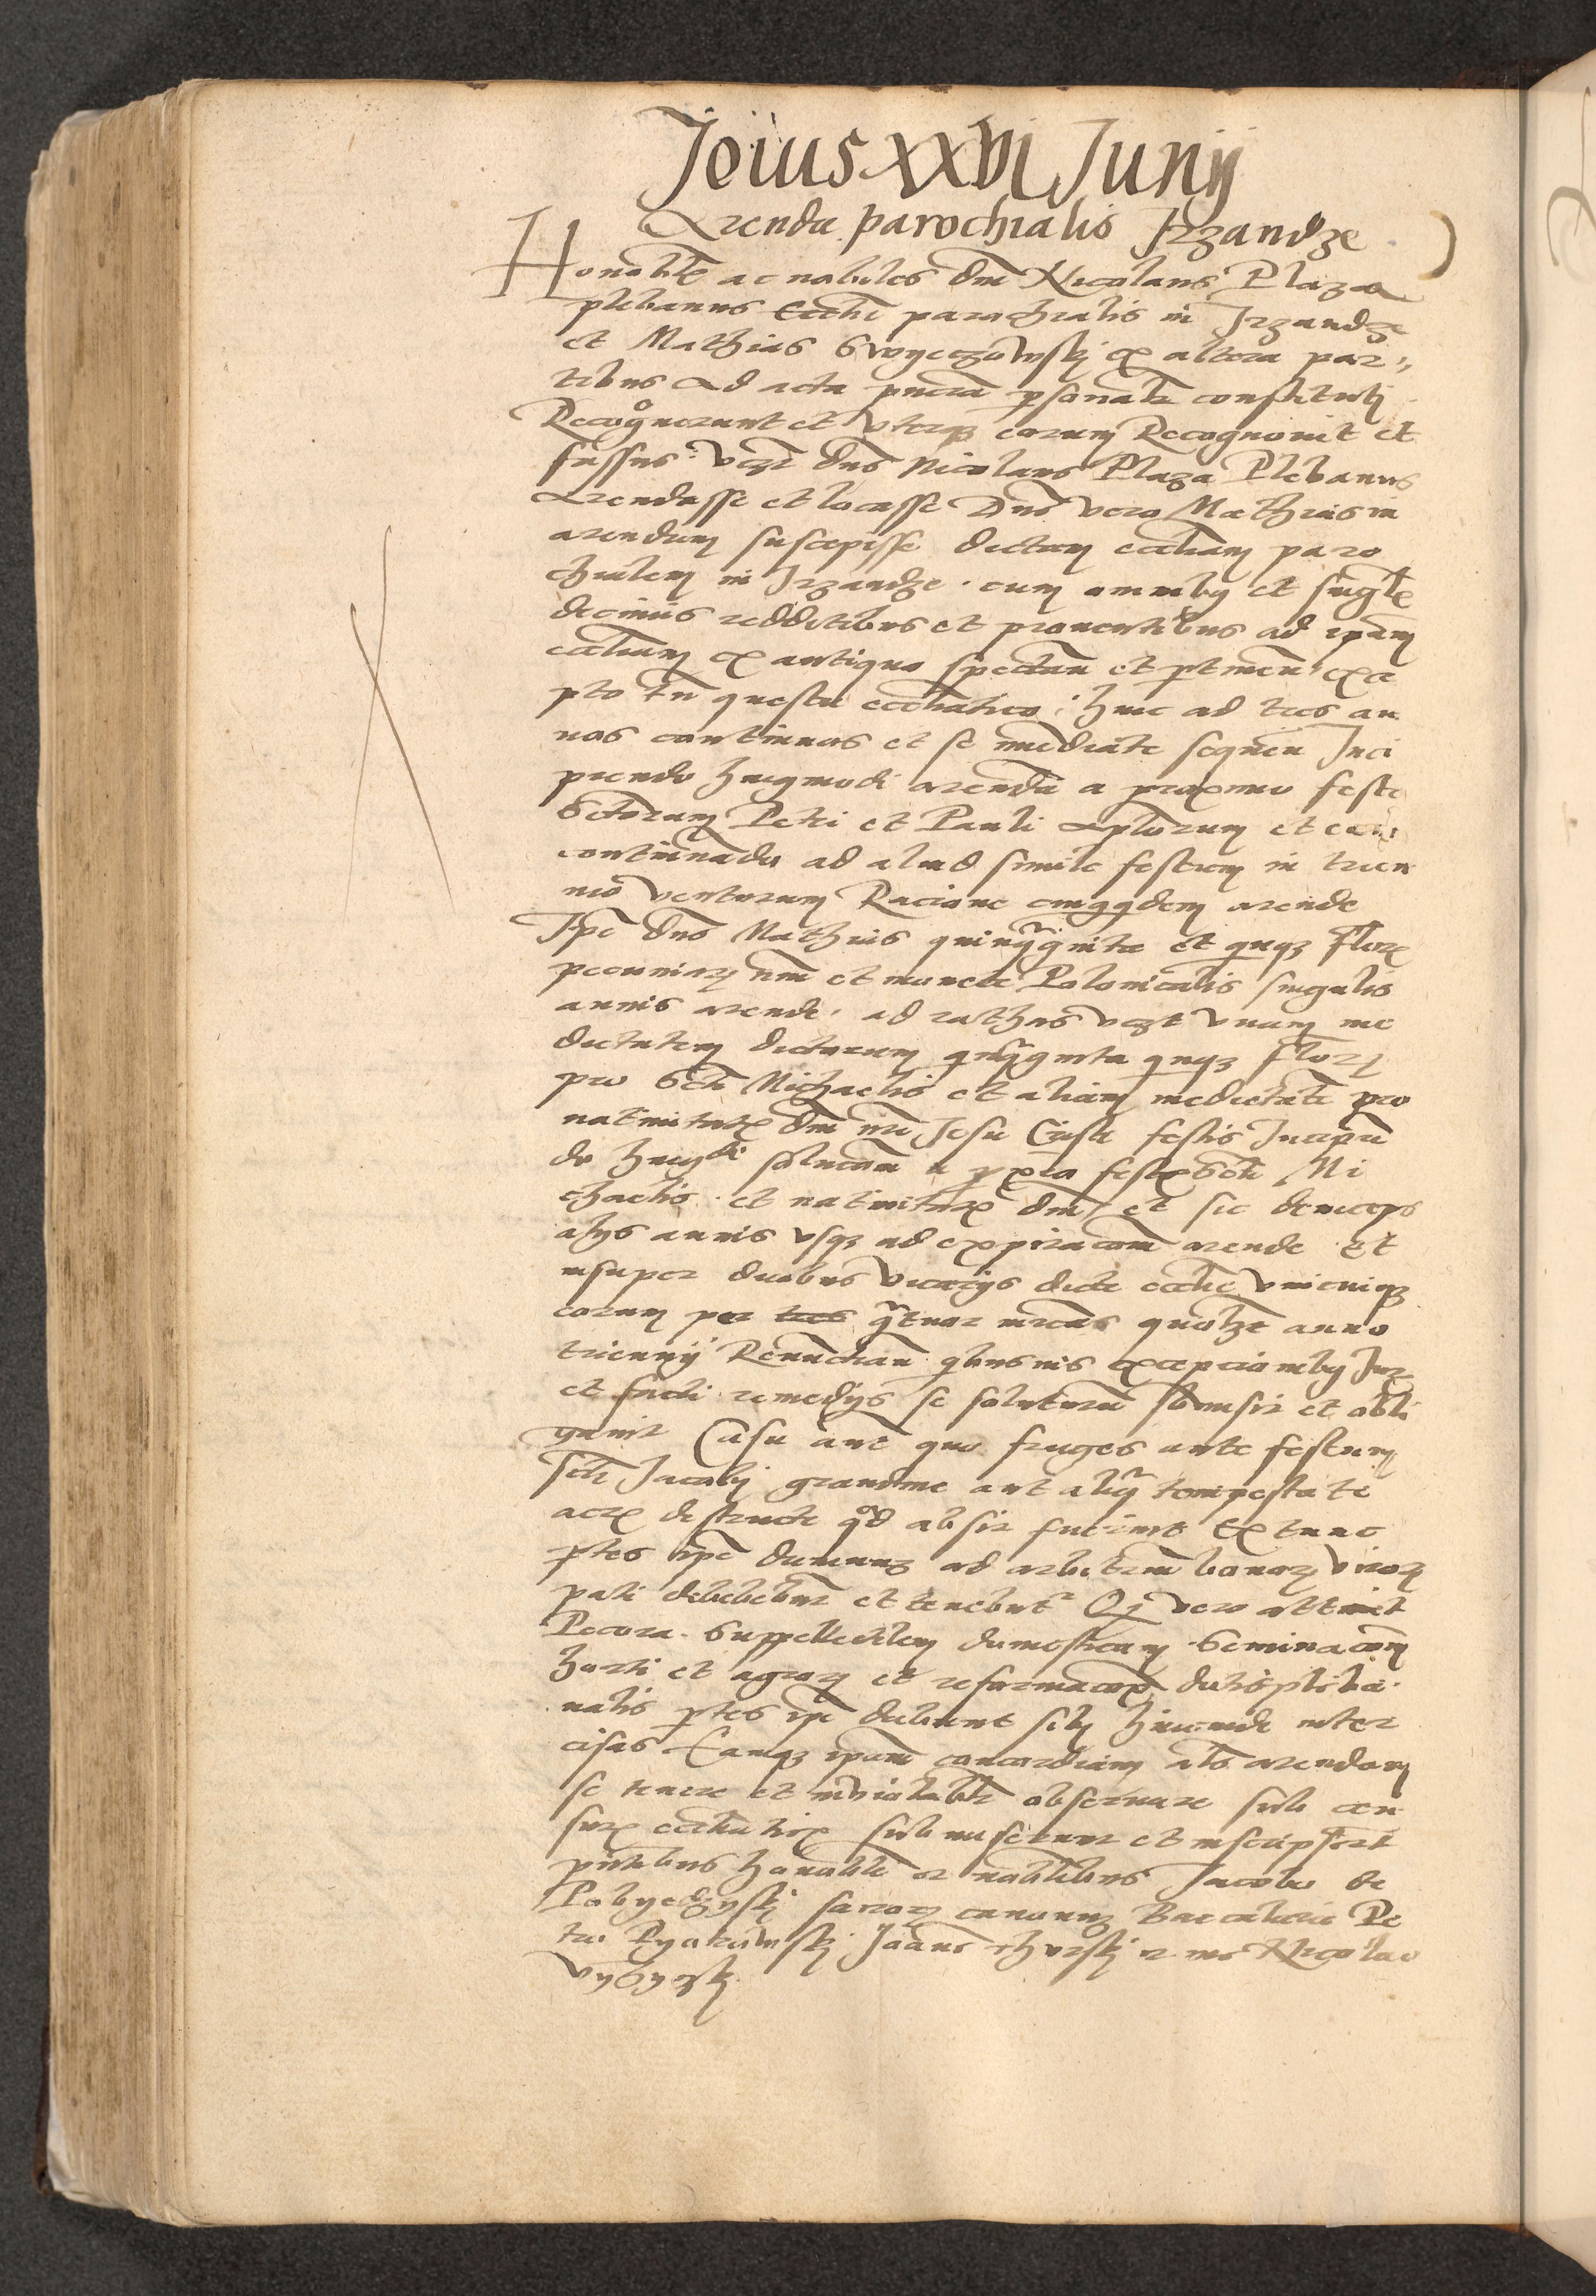 Jovis XXVI Junij
Arenda parochialis Jrzandze
Honobiles ac nobiles dni Nicolaus Plaza
plebanus Ecclie parochialis in Jrzandze
et Mathias ex altera par
tibus Ad acta pncia psonalr constituti
Recognoverunt et vterq eorum Recognovit et
fassus vczt dns Nicolaus Plaza Plebanus
Arendasse et locasse Dns vero Mathias in
arendam suscepisse dictam eccliam paro
chialem in Jrzandze cum omnibq et singlis
decimis redditibus et proventibus ad ipam
eccliam ex antiquo spectan et ptinen exce
pto tn questu ecclastico hinc ad tres an
nos continuos et se immediate sequen Inci
piendo huiqmodi arenda a proximo festo
Sctorum Petri et Pauli Aplorum et
continuado ad aliud simile festum in trien
nio venturum Racione cuiqquidem arende
Ipe dns Mathias quinquaginta et quinq floren
pecuniarum num et monete Polonicalis singulis
annis arende ad rathas vczt vnam me
dietatem dictorum quinquaginta quinq floren
pro Scti Michaelis et aliam medietate pro
nativitatis dni nri Jesu Cristi festis Incipien
do huiqmodi solucem a pxio festo Scti Mi
chaelis et nativitatis dni et sic deinceps
alijs annis vsq ad expiracem arende et
insuper duobus vicarijs dicte ecclie vnicuiq
eorum per tres quatuor mrcas quolzt anno
triennij Renuncian quibusvis excepcionibq Juris
et facti remedijs se soluturum submisit et obli
gavit Casu aute quo fruges ante festum
Scti Jacobi grandine aut aliqua tempestate
aeris destructe qd absit fuerint Extunc
ptes ipe damnum ad arbitrium bonorum virorum
pati debebebunt et tenebunt Quo vero attinet
Pecora Suppellectilem domesticam Seminacem
horti et agrorum et reformacem dotis pleba
nalis ptes ipe debent sibi hincinde inter
cisas Eamq ipam concordiam als arendam
se tenere et inviolabilr observare sub cen
suris ecclasticis submiserunt et inscripsert
pntibus honobili et nobilibus Jacobo de
Pobyedzysky sacrorum canonum Baccalario Pe
tro Joanne et me Nicolao